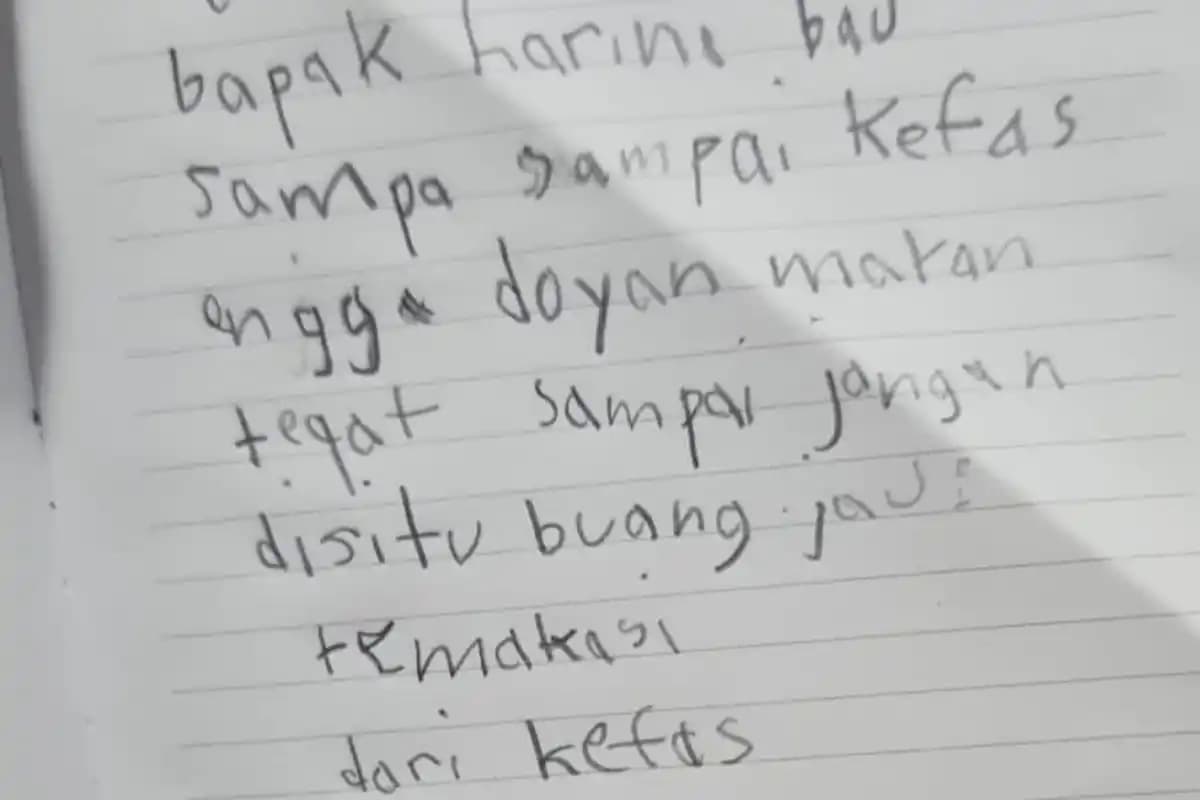 bapak harini bau
sampa sampai kefas
engga doyan makan
teqat sampai jangan
disitu buang jau:
temakasi
dari kefas